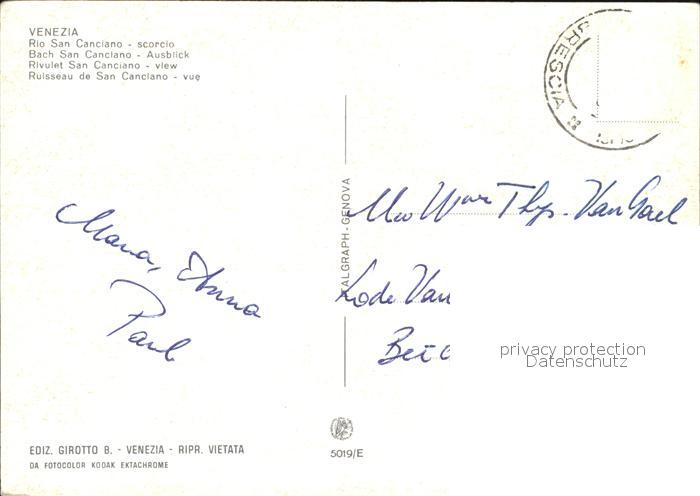 VENEZIA
Rio San Canciano - scorcio
Bach San Canciano - Ausblick
Rivulet San Canciano - view
Ruisseau de San Canciano - vue
BRESCIA
ALGRAPH - GENOVA
Mw Wwe Thys - Van Gael
Lode Van
Maria, Anna
Paul
privacy protection
Datenschutz
EDIZ. GIROTTO B. - VENEZIA - RIPR. VIETATA
DA FOTOCOLOR KODAK EKTACHROME
5019/E